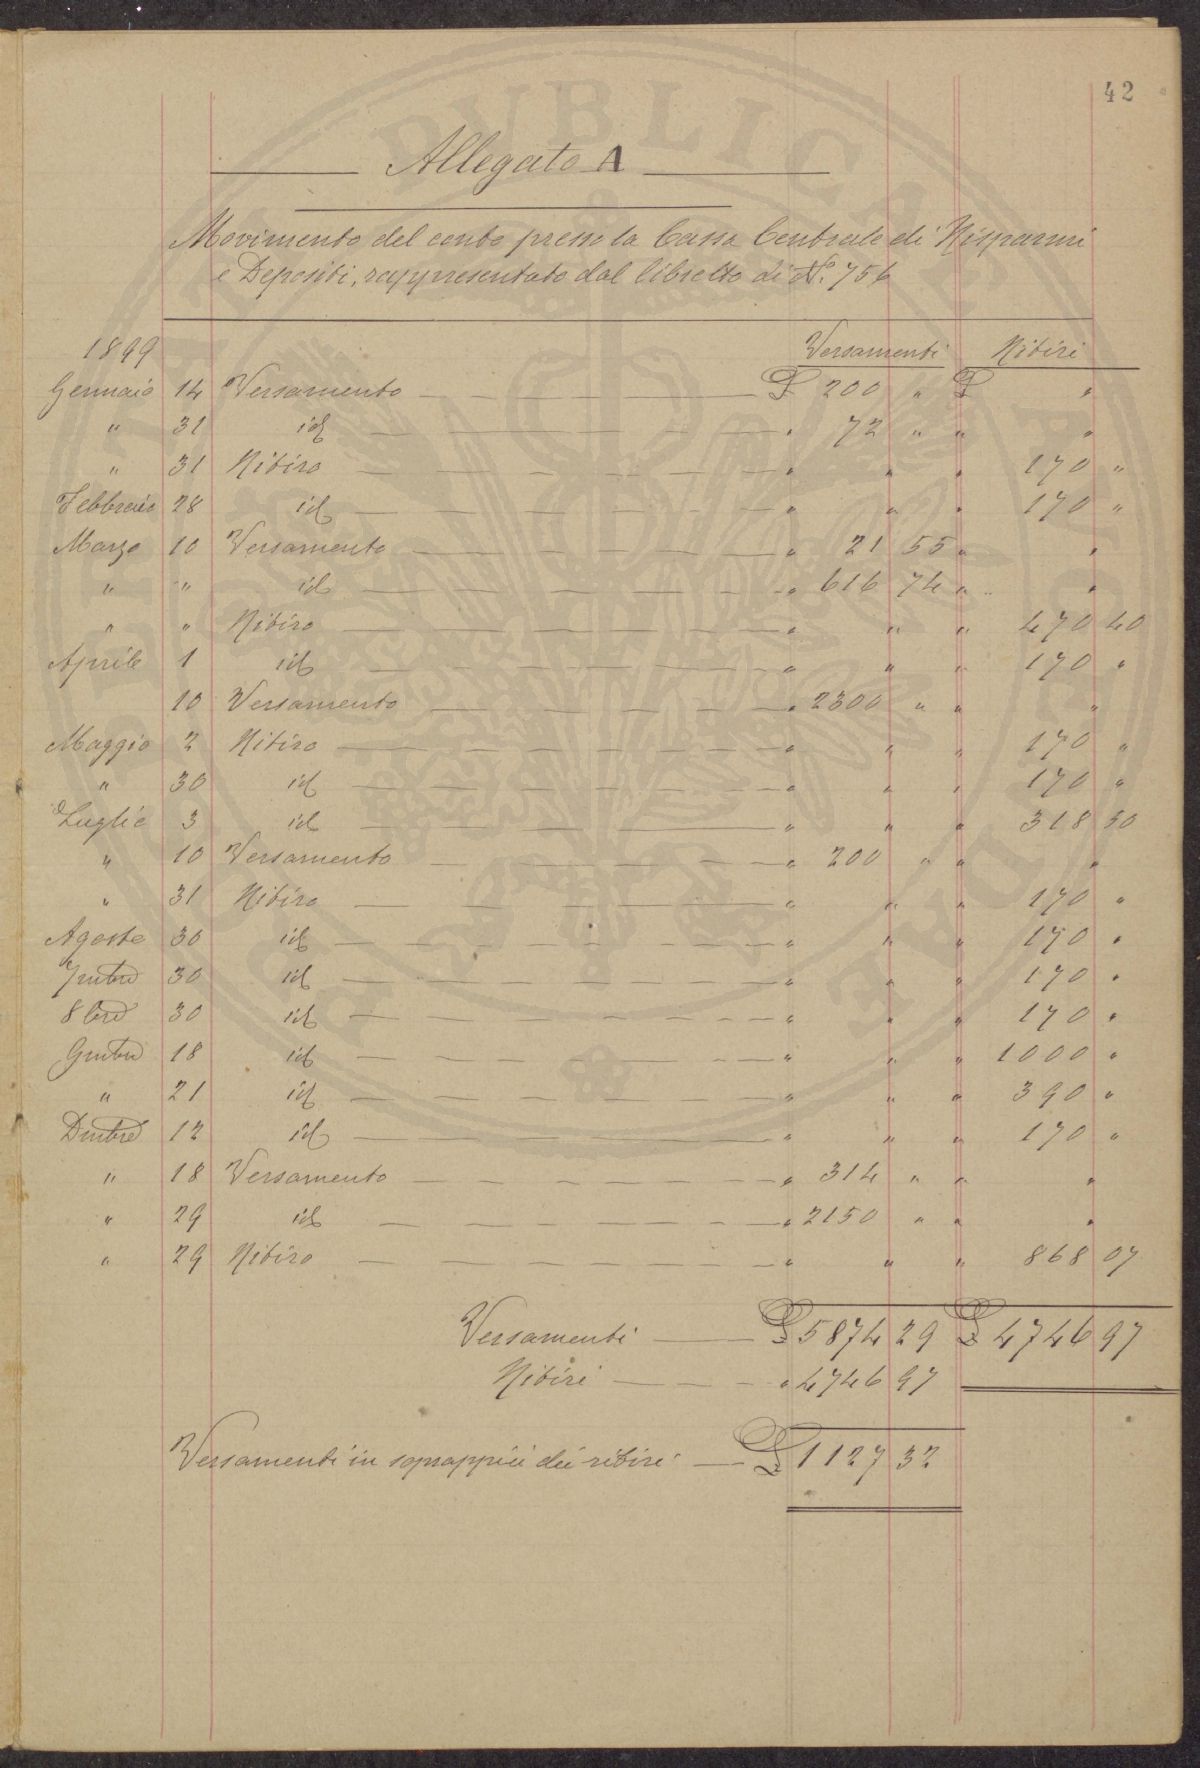 42
Allegato A
Movimento del conto presso la Cassa Centrale di Risparmi
e Depositi, rappresentato dal libretto di No. 756
1899 Versamenti Ritiri
Gennaio 14 Versamento £ 200 " £ "
" 31 id " 72 " " "
" 31 Ritiro " " " 170 "
Febbraio 28 id " " " 170 "
Marzo 10 Versamento " 21 55 " "
" " id " 616 74 " "
" " Ritiro " " " 470 40
Aprile 1 id " " " 170 "
10 Versamento " 2300 " " "
Maggio 2 Ritiro " " " 170 "
" 30 id " " " 170 "
Luglio 3 id " " " 318 50
" 10 Versamento " 200 " " "
" 31 Ritiro " " " 170 "
Agosto 30 id " " " 170 "
7mbre 30 id " " " 170 "
8bre 30 id " " " 170 "
9mbre 18 id " " " 1000 "
" 21 id " " " 390 "
Dmbre 12 id " " " 170 "
" 18 Versamento " 314 " " "
" 29 id " 2150 " " "
" 29 Ritiro " " " 868 07
Versamenti £ 5874 29 £ 4746 97
Ritiri " 4746 97
Versamenti in soprappiù dei ritiri £ 1127 32
PUBLICAE